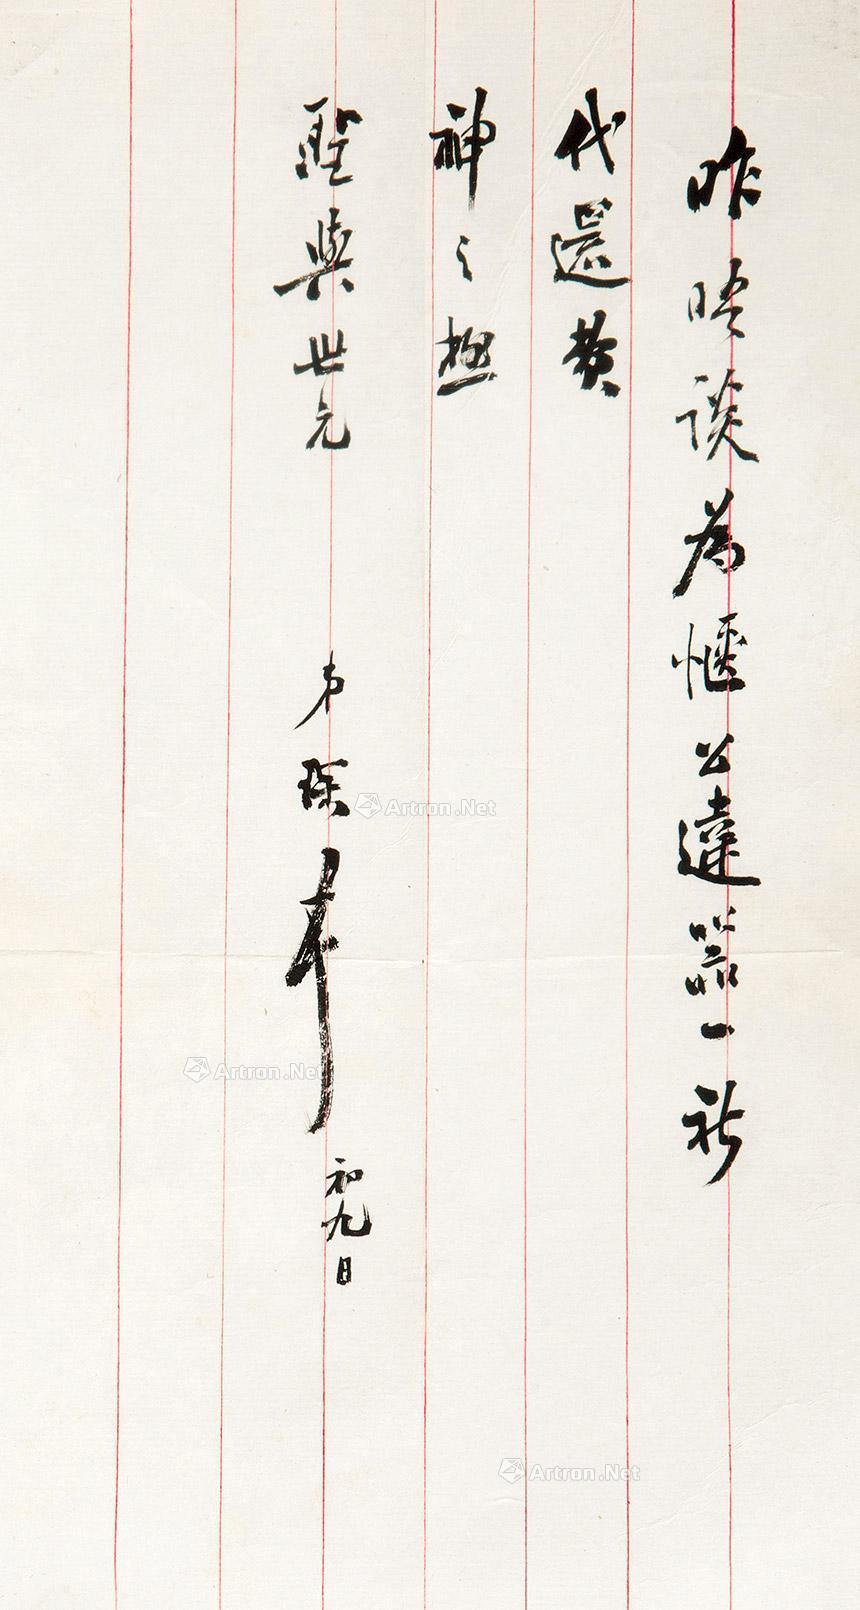 昨晤談為愜公達器一祈
代還費
神之極
聖與世兄
弟琛
初九日
Artron.Net
Artron.Net
Artron.Net